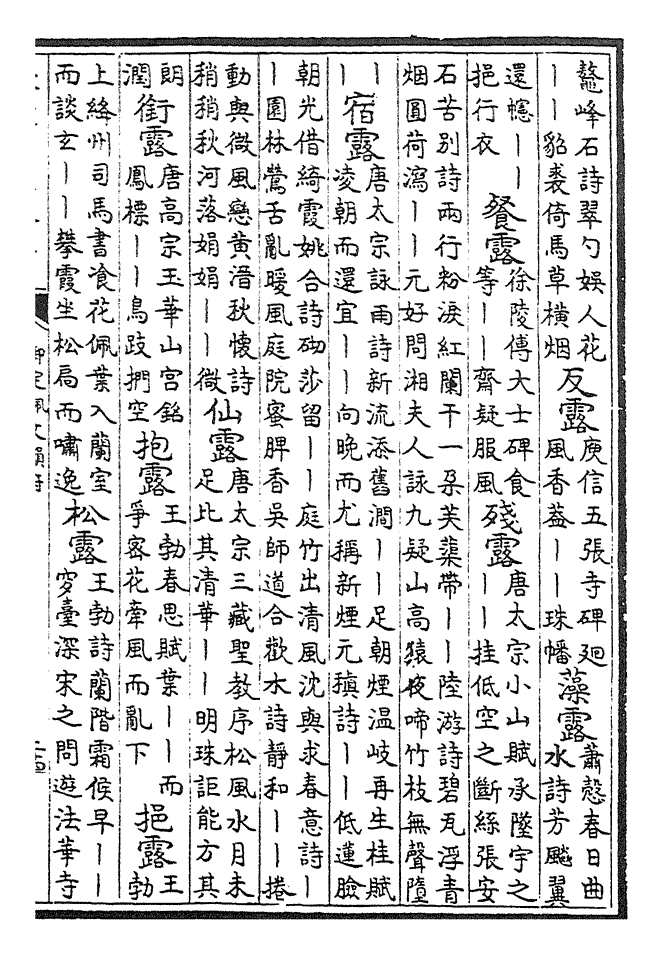 鰲峰石詩翠勺娛人花丨丨貂裘倚馬草横烟 反露 庾信五張寺碑廻風香葢丨丨珠幡 藻露 蕭慤春日曲水詩芳飈翼
還幰丨丨挹行衣 餐露 徐陵傅大士碑食等丨丨齊疑服風 殘露 唐太宗小山賦承墜宇之丨丨挂低空之斷絲張安
石苦別詩兩行粉淚紅闌干一朶芙蕖帶丨丨陸游詩碧瓦浮青烟圓荷瀉丨丨元好問湘夫人詠九疑山高猿夜啼竹枝無聲墮
丨丨 宿露 唐太宗詠雨詩新流添舊澗丨丨足朝煙温岐再生桂賦凌朝而還宜丨丨向晚而尤稱新煙元稹詩丨丨低蓮臉
朝光借綺霞姚合詩砌莎留丨丨庭竹出清風沈與求春意詩丨丨園林鶯舌亂暖風庭院蜜脾香吳師道合歡木詩靜和丨丨捲
動與微風戀黄溍秋懷詩稍稍秋河落娟娟丨丨微 仙露 唐太宗三藏聖教序松風水月未足比其清華丨丨明珠詎能方其
朗潤 銜露 唐高宗玉華山宮銘鳳標丨丨鳥跂捫空 抱露 王勃春思賦葉丨丨而爭密花牽風而亂下 挹露 王勃
上絳州司馬書飡花佩葉入蘭室而談玄丨丨攀霞坐松扃而嘯逸 松露 王勃詩蘭階霜候早丨丨穸臺深宋之問遊法華寺